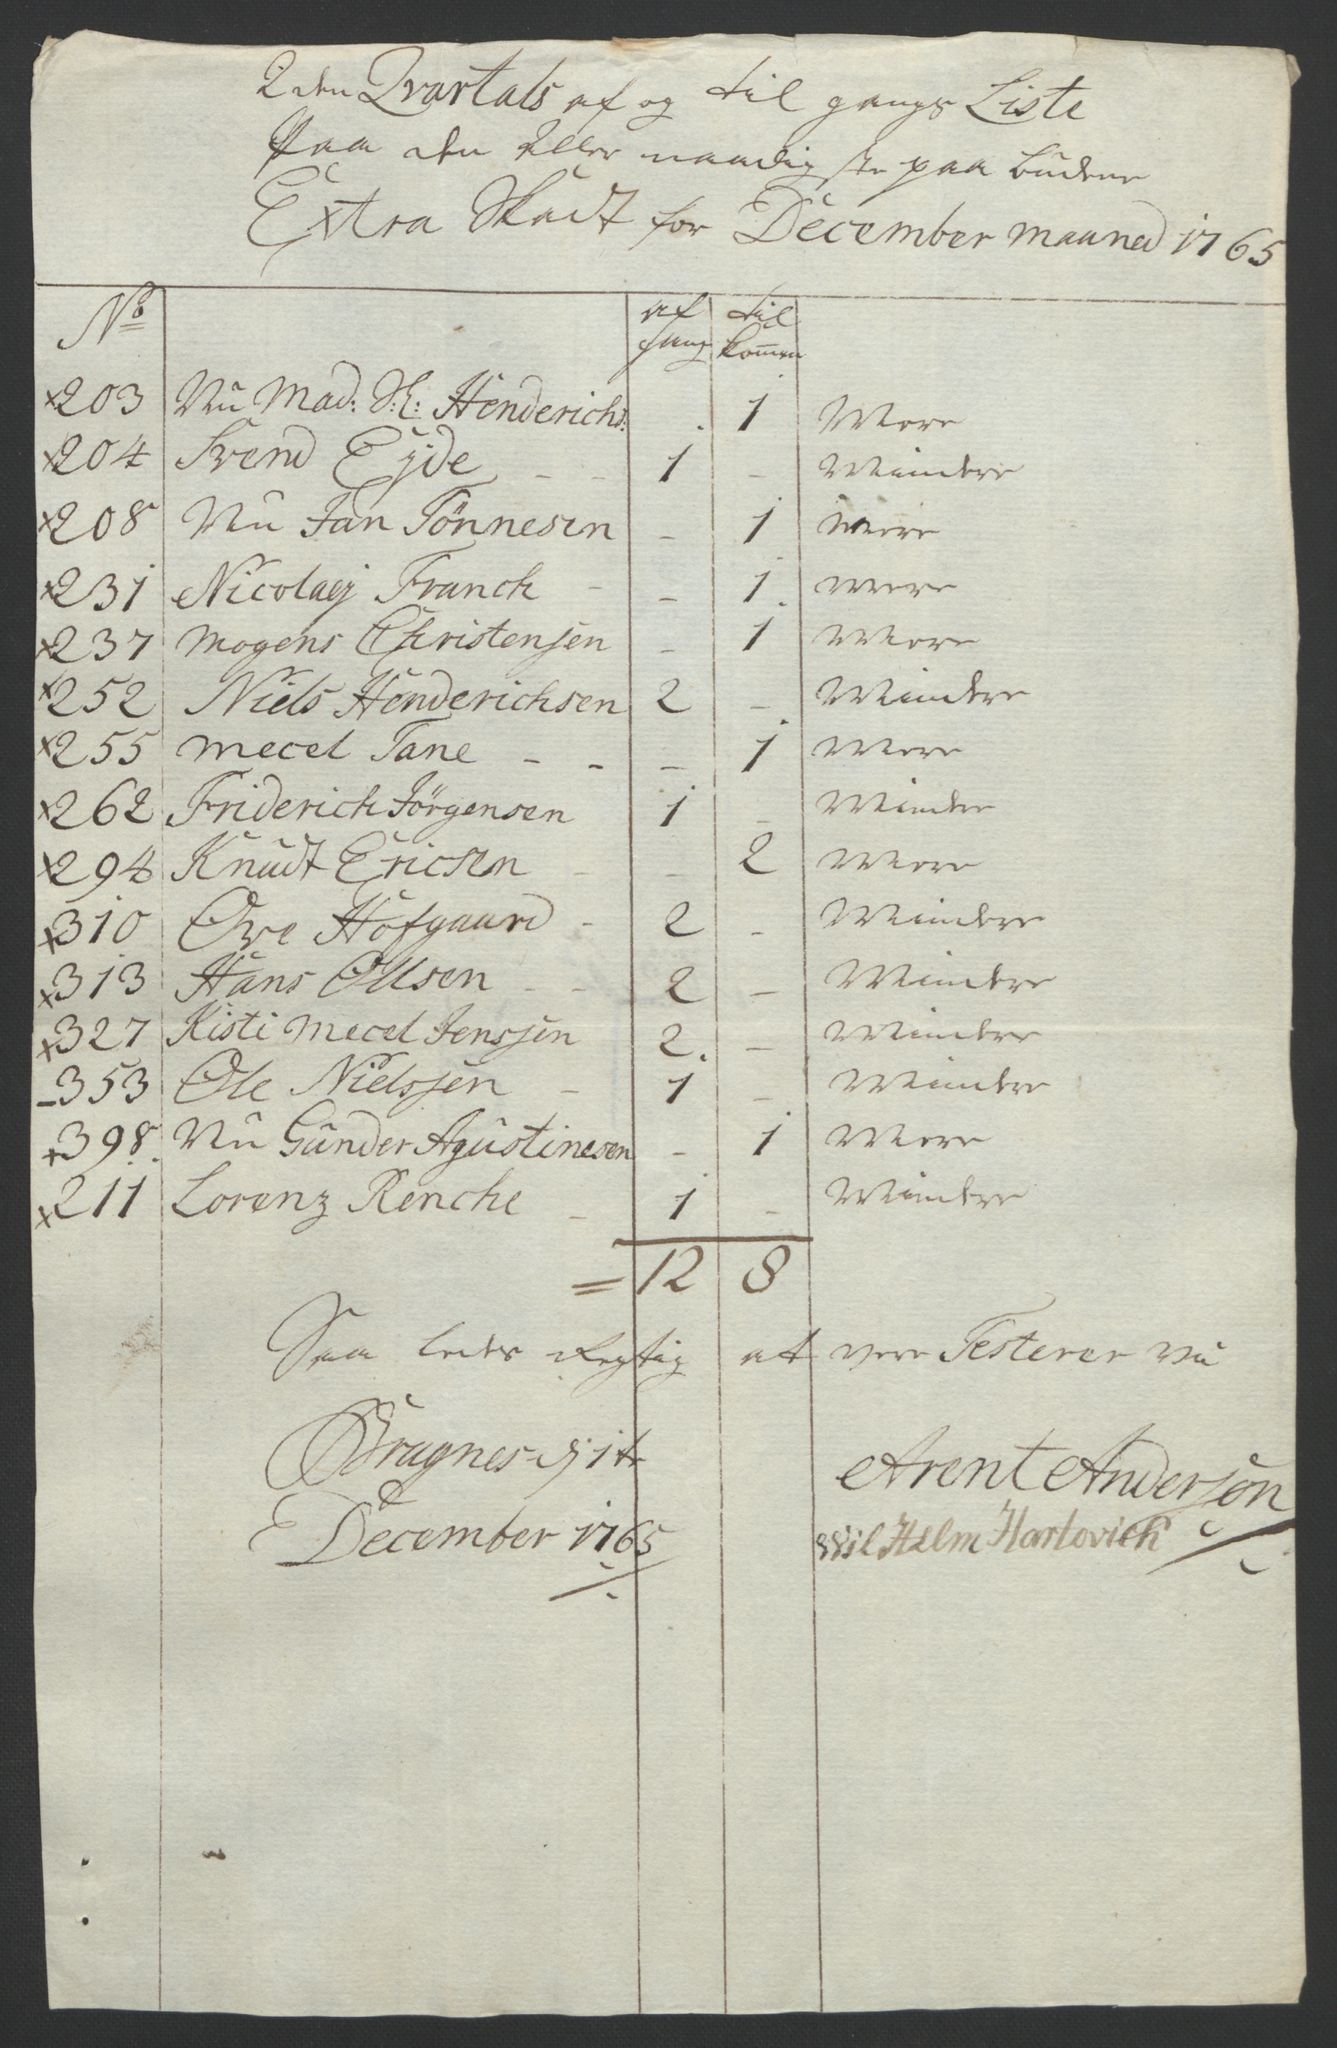 2den Qvartals af og til gangs Liste
Paa den aller naadigste paa budene
Extra Skadt for December maaned 1765
No af gang til kommen
x203 Nu Mad: Sl: Henderichs: . 1 Mere
x204 Svend Eÿde - - 1 - Mindere
x208 Nu Jan Tönnesen - 1 mere
x231 Nicolaej Franck - - 1. mere
x237 mogens Christensen - 1 Mere
x252 Niels Henderichsen 2 - Mindere
x255 mecel Tane - - - 1 Mere
x262 Friderich Jörgensen 1 - Mindre
x294 Knudt Ericsen - - 2 Mere
x310 Ove Hofgaard - 2 - Mindere
x313 Hans Ollsen - - 2 - Mindere
x327 Kisti mecel Jenssen 2. - Mindere
-353 Ole Nielssen - 1 - Mindere
+398. Nu Gunder Agustinesen - 1 Mere
x211 Lorenz Renche - 1 - Mindere
= 12 8
Saa ledes Regtig at vere Testerer Nu
Bragnes d 1te
December 1765
Arent Andersøn
Wilhelm Hartovick